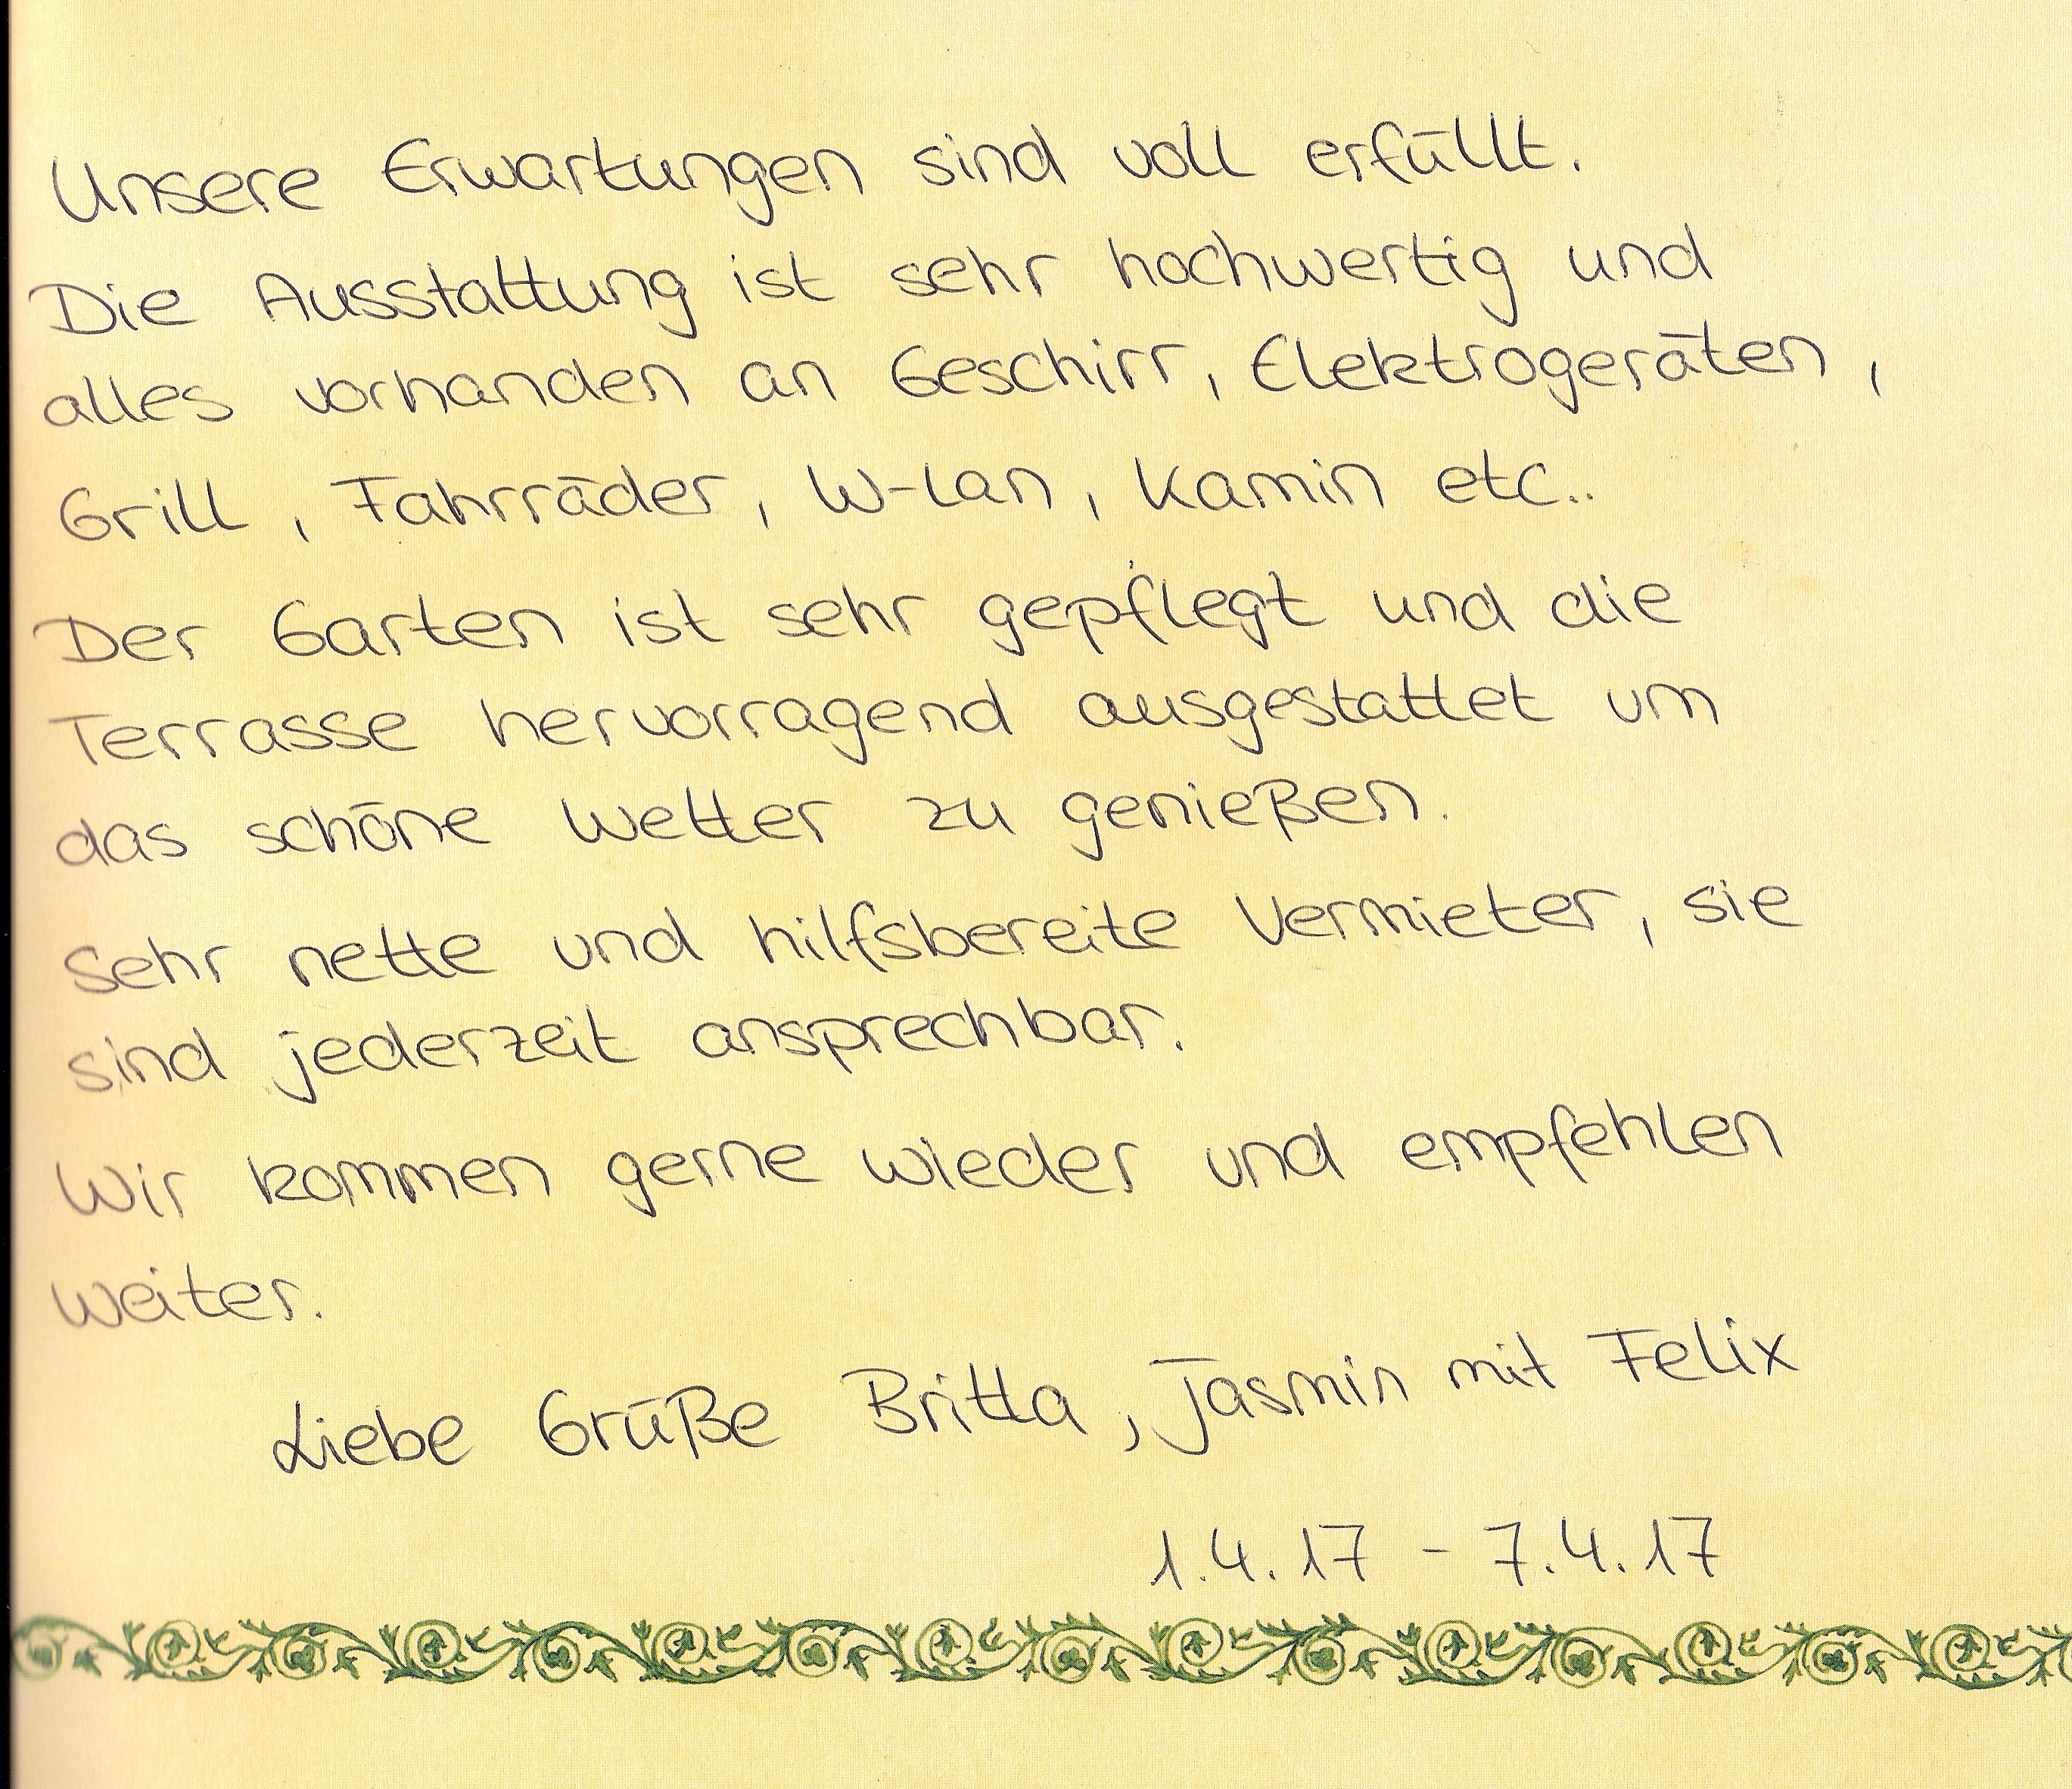 Unsere Erwartungen sind voll erfüllt.
Die Ausstattung ist sehr hochwertig und
alles vorhanden an Geschirr, Elektrogeräten,
Grill, Fahrräder, W-Lan, Kamin etc..
Der Garten ist sehr gepflegt und die
Terrasse hervorragend ausgestattet um
das schöne Wetter zu genießen.
Sehr nette und hilfsbereite Vermieter, sie
sind jederzeit ansprechbar.
Wir kommen gerne wieder und empfehlen
weiter.
Liebe Grüße Britta, Jasmin mit Felix
1.4.17 - 7.4.17